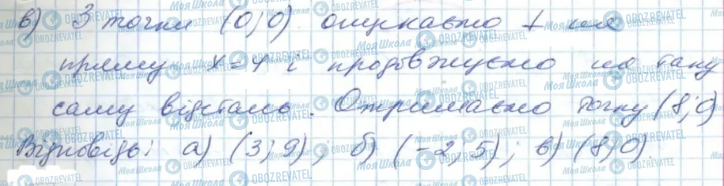 в) З точки (0; 0) опускаємо ⊥ на
пряму x = 4 і продовжуємо на таку
саму відстань. Отримаємо точку (8; 0)
Відповідь: а) (3; 9); б) (-2; 5); в) (8; 0).